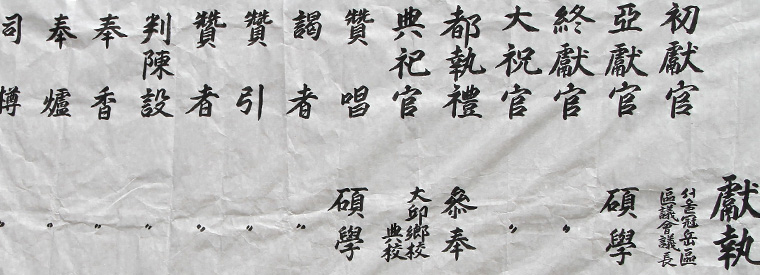 獻執
初獻官 서울冠岳區
區議會議長
亞獻官 碩學
終獻官 〃
大祝官 〃
都執禮 參奉
典祀官 大邱鄉校
典校
贊唱 碩學
謁者 〃
贊引 〃
贊者 〃
判陳設 〃
奉香 〃
奉爐 〃
司樽 〃